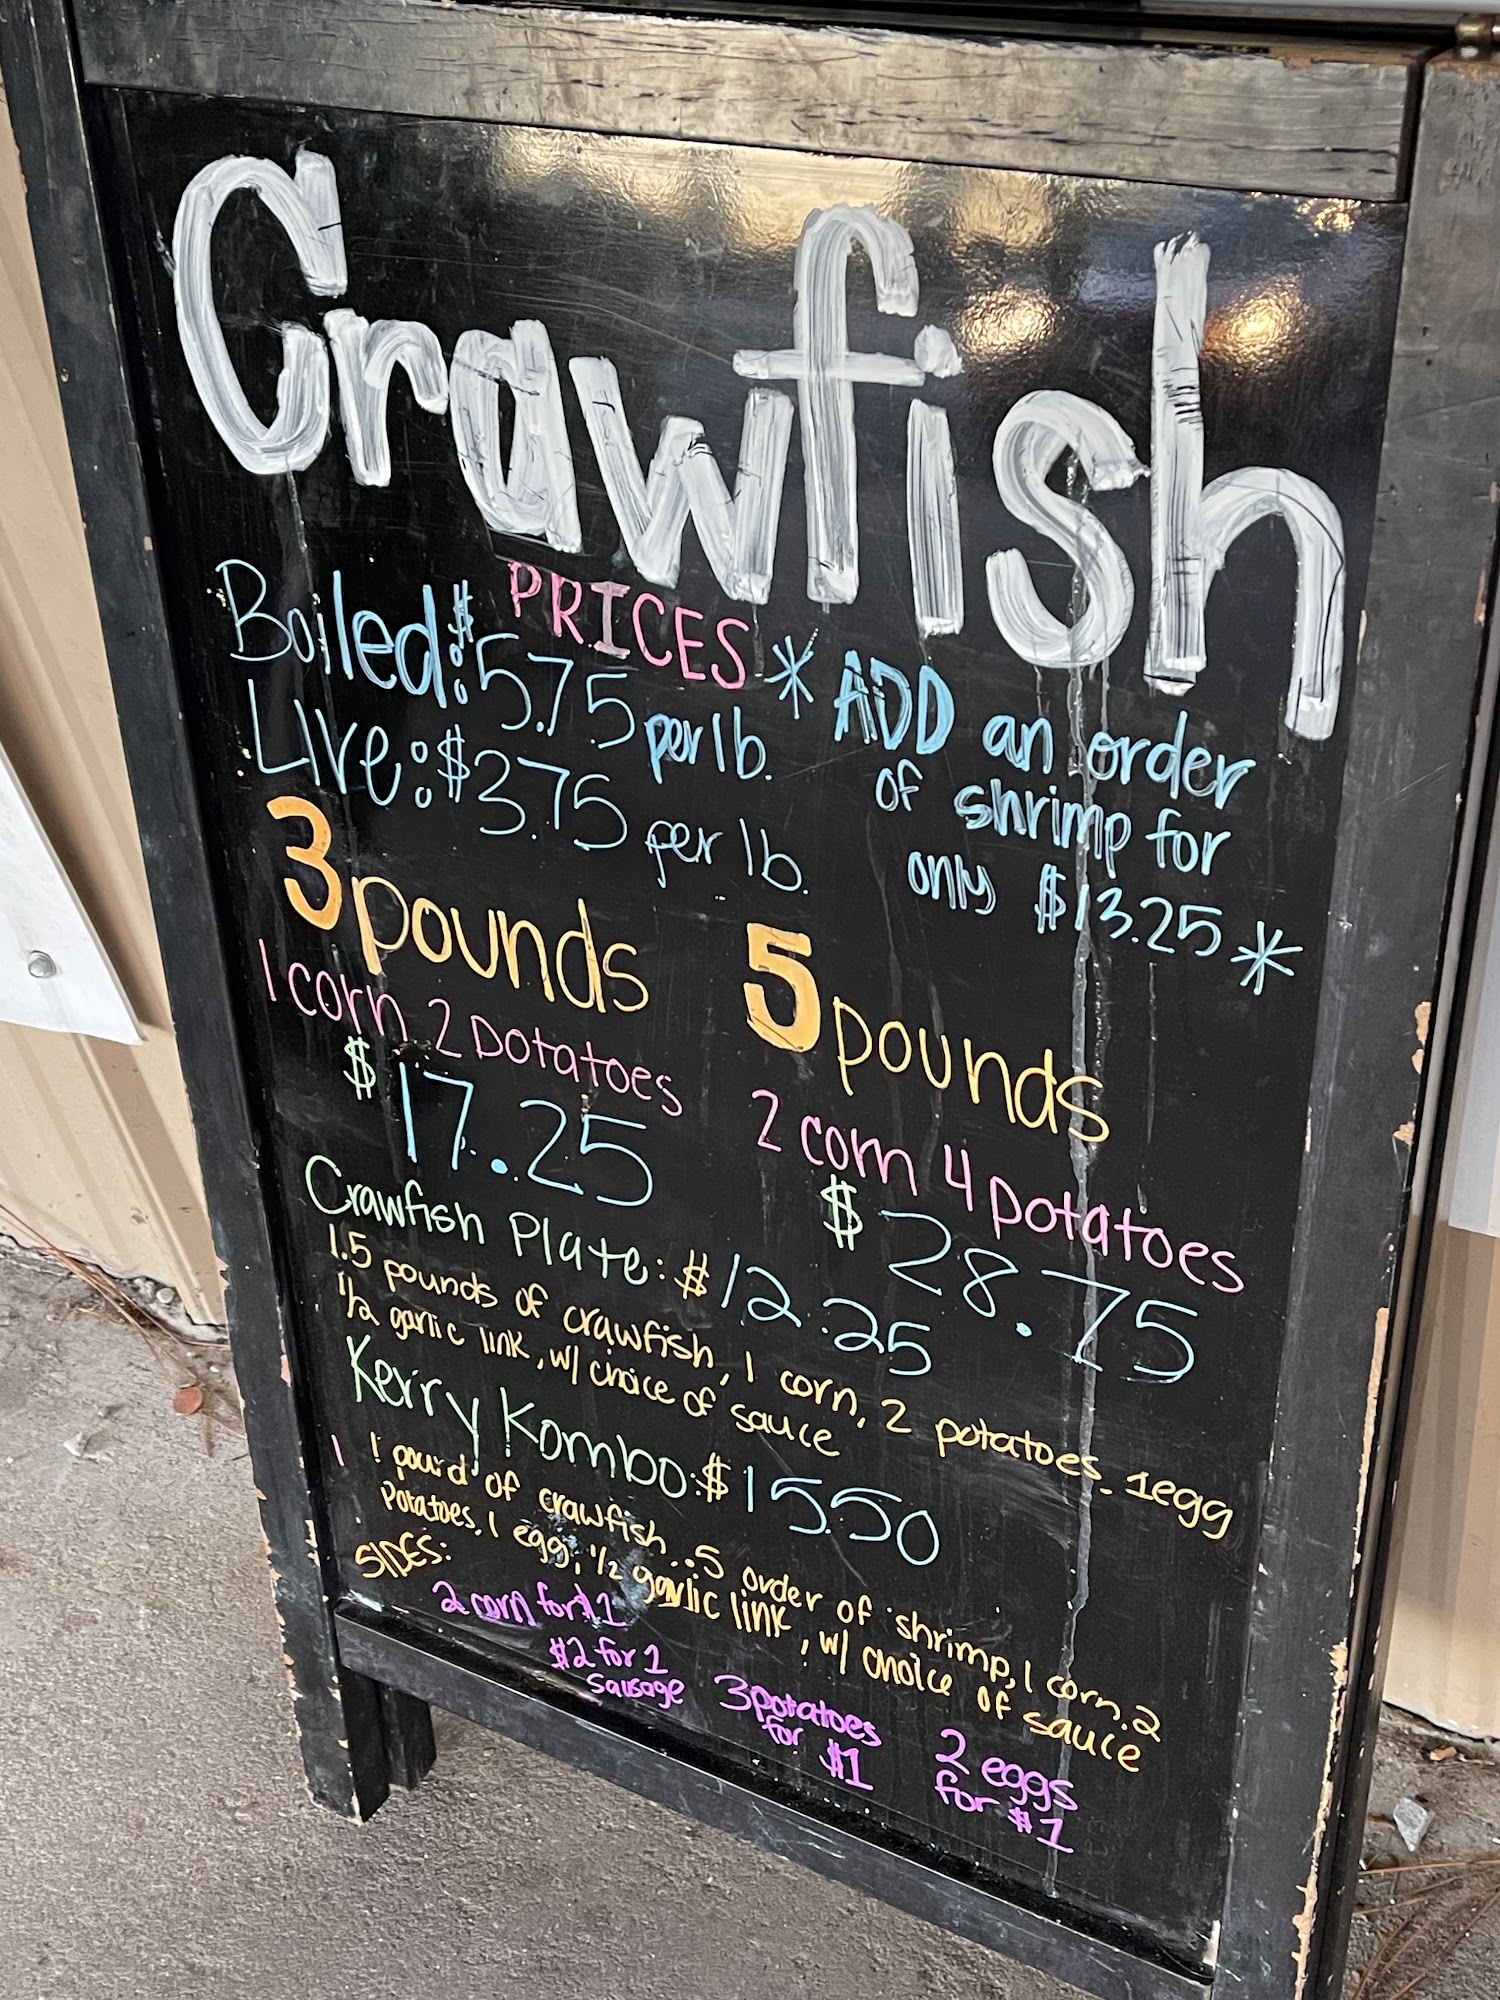 Crawfish
PRICES
Boiled: $5.75 per lb.
Live: $3.75 per lb.
* ADD an order
of shrimp for
only $13.25 *
3 pounds
1 corn 2 potatoes
$17.25
5 pounds
2 corn 4 potatoes
$28.75
Crawfish Plate: $12.25
1.5 pounds of crawfish, 1 corn, 2 potatoes, 1 egg
1/2 garlic link, w/ choice of sauce
Kerry Kombo: $15.50
1 pound of crawfish, .5 order of shrimp, 1 corn, 2
potatoes, 1 egg, 1/2 garlic link, w/ choice of sauce
SIDES:
2 corn for $1
$2 for 1
sausage
3 potatoes
for $1
2 eggs
for $1